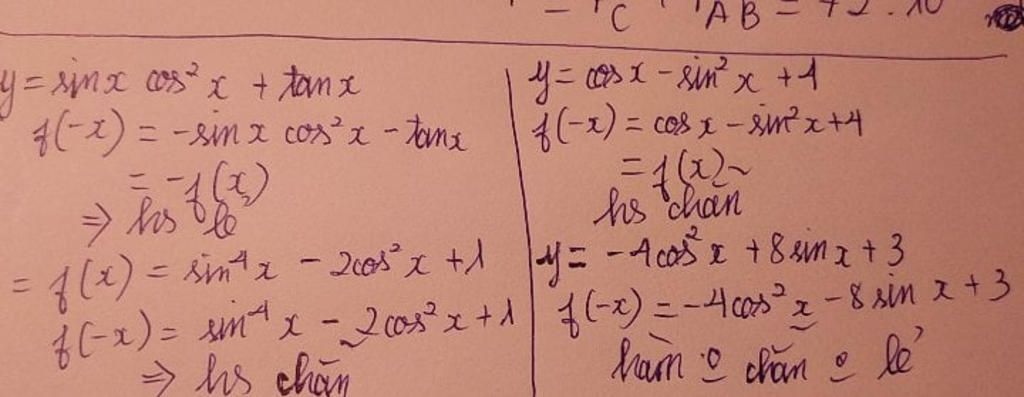 C AB =
y = sinx cos² x + tanx
f(-x) = -sin x cos² x - tanx
= -f(x)
⇒ hs lẻ
= f(x) = sin⁴ x - 2cos² x + 1
f(-x) = sin⁴ x - 2cos² x + 1
⇒ hs chẵn
y = cos x - sin² x + 4
f(-x) = cos x - sin² x + 4
= f(x)
hs chẵn
y = -4cos² x + 8 sin x + 3
f(-x) = -4cos² x - 8 sin x + 3
hàm o chẵn o lẻ